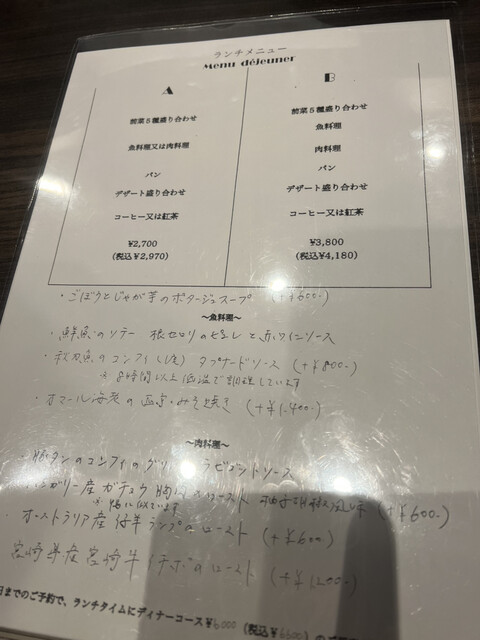 ランチメニュー
Menu déjeuner
A
前菜5種盛り合わせ
魚料理又は肉料理
パン
デザート盛り合わせ
コーヒー又は紅茶
¥2,700
(税込¥2,970)
B
前菜5種盛り合わせ
魚料理
肉料理
パン
デザート盛り合わせ
コーヒー又は紅茶
¥3,800
(税込¥4,180)
・ごぼうとじゃが芋のポタージュスープ (+¥600-)
～魚料理～
・鮮魚のソテー 根セロリのピューレと赤ワインソース
・秋刀魚のコンフィ タプナードソース (+¥800-)
※8時間以上低温で調理しています
・オマール海老の みそ焼き (+¥1,400-)
～肉料理～
・豚タンのコンフィのグリ ラビゴットソース
ハンガリー産ガチョウ胸 ロースト 柚子胡椒風味 (+¥600-)
※鴨に似ています
・オーストラリア産仔羊ランプのロースト (+¥600)
宮崎県産宮崎牛イチボのロースト (+¥1200-)
日までのご予約で、ランチタイムにディナーコース¥6000 (税込¥6600) のご